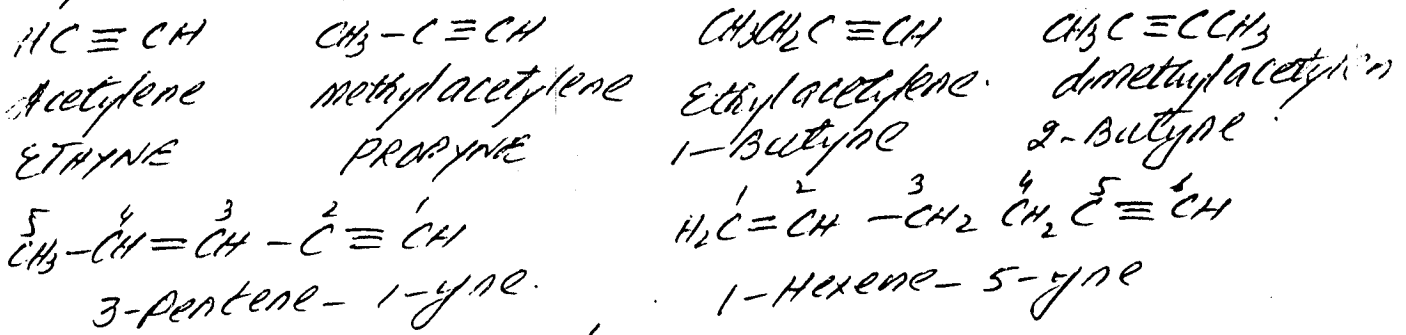 HC ≡ CH CH3 – C ≡ CH CH3CH2C ≡ CH CH3C ≡ CCH3
Acetylene methylacetylene Ethylacetylene. dimethylacetylen
ETHYNE PROPYNE 1–Butyne 2-Butyne.
5 4 3 2 1 1 2 3 4 5 6
CH3–CH=CH–C≡CH H2C=CH –CH2 CH2C≡CH
3-Pentene– 1-yne. 1–Hexene– 5-yne